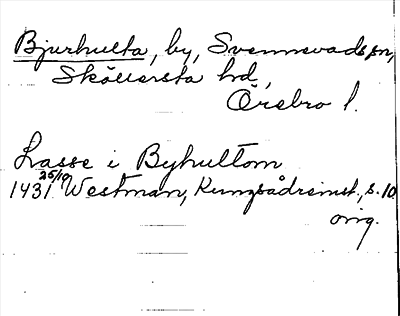 Bjurhulta, by, Svennevads sn,
Sköllersta hd,
Örebro l.
Lasse i Byhultom
1431 25/10 Westman, Kungsådreinst., s. 10
orig.